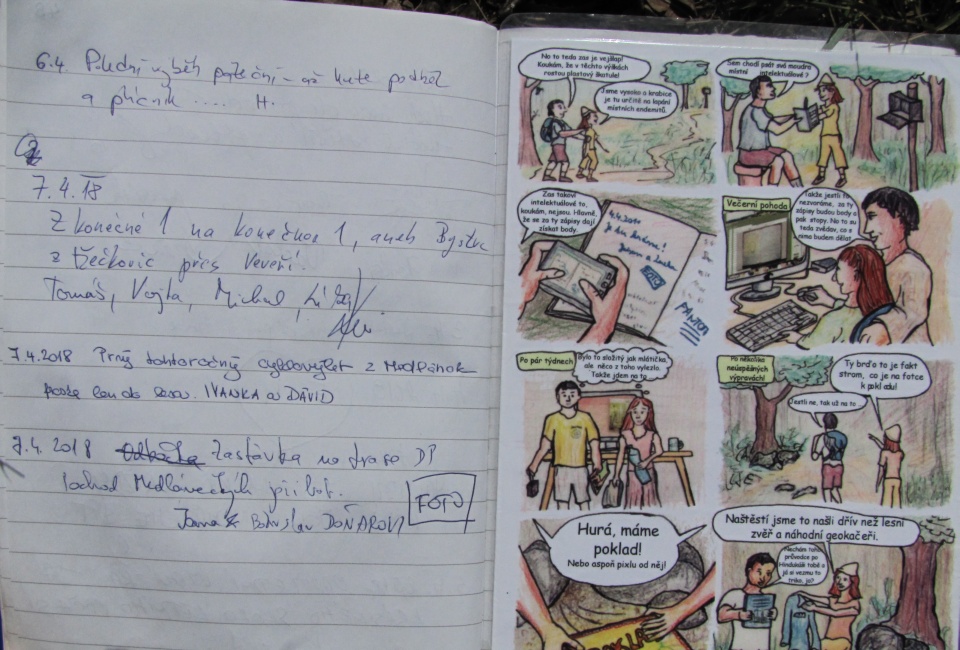 6.4. Polední výběh
a příčník .... H.
7.4.18
Z konečné 1 na konečnou 1, aneb Bystrc
z Řečkovic přes Veveří.
Tomáš, Vojta, Michal,
7.4.2018 Prvý tohtoročný cyklovýlet z Medlánok
IVANKA a DÁVID
7.4.2018 Zastávka na trase DP
pochod Medláneckých
Jana & Bohuslav DOŇAROVI
FOTO
No to teda zas je vejšlap!
Koukám, že v těchto výškách
rostou plastový škatule!
Jsme vysoko a krabice
je tu určitě na lapání
místních endemitů.
Sem chodí psát svá moudra
místní intelektuálové?
Zas takoví
intelektuálové to,
koukám, nejsou. Hlavně,
že se za ty zápisy dají
získat body.
4.4.2010
Večerní pohoda
Takže jestli to
nezvoráme, za ty
zápisy budou body a
pak stopy. No to su
teda zvědav, co s
nima budem dělat.
Po pár týdnech
Bylo to složitý jak mlátička,
ale něco z toho vylezlo.
Takže jdem na to...
Po několika
neúspěšných
výpravách!
Ty brďo to je fakt
strom, co je na fotce
k pokladu!
Jestli ne, tak už na to
Hurá, máme
poklad!
Nebo aspoň pixlu od něj!
Naštěstí jsme to našli dřív než lesní
zvěř a náhodní geokačeři.
Nechám toho
průvodce po
Hindukúši tobě a
já si vezmu to
triko, jo?